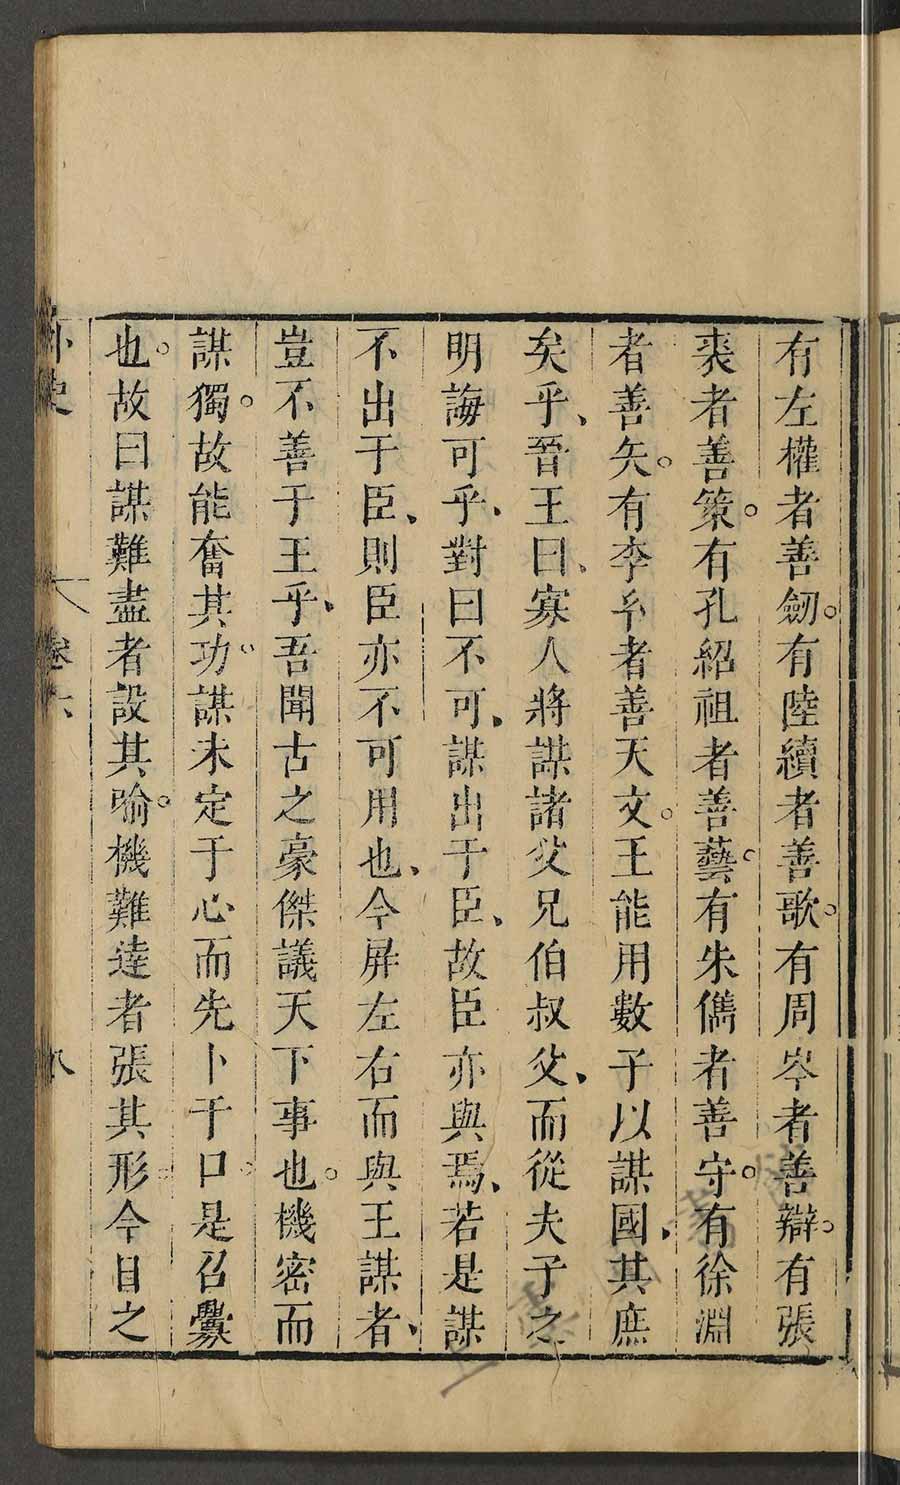 有左權者善劒。有陸續者善歌。有周岑者善辯。有張
裘者善策。有孔紹祖者善藝。有朱儁者善守。有徐淵
者善矢。有李卞者善天文。王能用數子以謀國、其庶
矣乎、吾王曰、寡人將謀諸父兄伯叔父、而從夫子之
明誨可乎、對曰不可、謀出于臣、故臣亦與焉、若是謀
不出于臣、則臣亦不可用也、今屏左右而與王謀者、
豈不善于王乎、吾聞古之豪傑議天下事也。機密而
謀獨。故能奮其功。謀未定于心而先卜于口。是召釁
也。故曰謀難盡者設其喻。機難達者張其形。今目之
外史 卷六 八